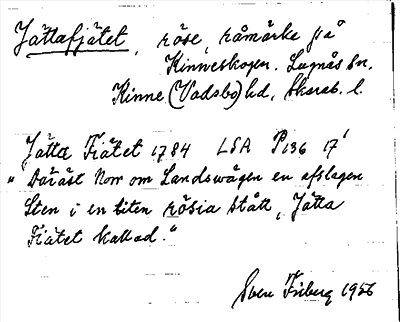 Jättafjätet, röse, råmärke på
Kinneskogen. Lugnås sn.
Kinne (Vadsbo) hd, Skarab. l.
Jätta Fiätet 1784 LSA P136 17'
"Däräst Norr om Landswägen en afslagen
Sten i en liten rösia stått, Jätta
Fiätet kallad."
Sven Friberg 1956